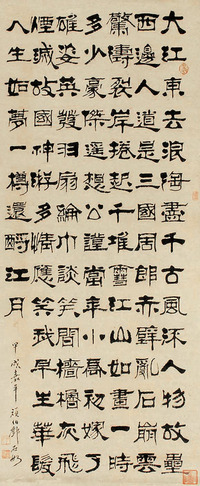 大江東去浪淘盡千古風流人物故壘
西邊人道是三國周郎赤壁亂石崩雲
驚濤裂岸捲起千堆雪江山如畫一時
多少豪傑遙想公瑾當年小喬初嫁了
雄姿英發羽扇綸巾談笑間檣櫓灰飛
煙滅故國神游多情應笑我早生華髮
人生如夢一樽還酹江月
甲戌嘉平頑伯鄧石如